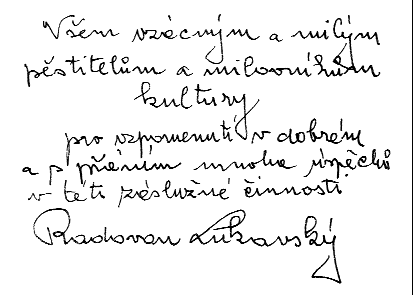 Všem vzácným a milým
pěstitelům a milovníkům
kultury
pro vzpomenutí v dobrém
a s přáním mnoha úspěchů
v této záslužné činnosti
Radovan Lukavský